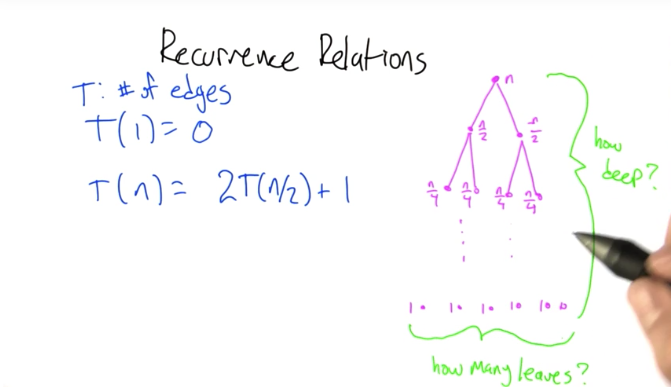 Recurrence Relations
T: # of edges
T(1) = 0
T(n) = 2T(n/2) + 1
n
n/2 n/2
n/4 n/4 n/4 n/4
1 1 1 1 1
how
deep?
how many leaves?